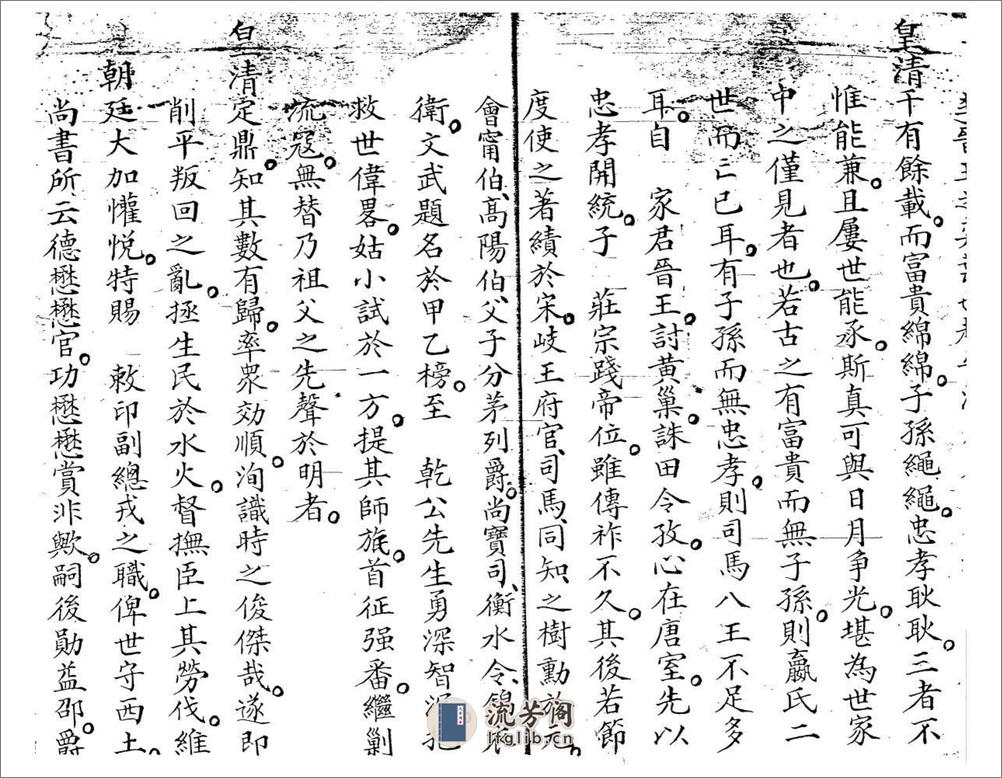 皇清千有餘載。而富貴綿綿。子孫繩繩。忠孝耿耿。三者不
惟能兼。且屢世能承。斯真可與日月爭光。堪為世家
中之僅見者也。若古之有富貴而無子孫。則嬴氏二
世而亡已耳。有子孫而無忠孝。則司馬八王不足多
耳。自 家君晉王。討黃巢。誅田令孜。心在唐室。先以
忠孝開統。子 莊宗踐帝位。雖傳祚不久。其後若節
度使之著績於宋。岐王府官、司馬、同知、之樹勳於元。
會甯伯、高陽伯、父子分茅列爵。尚寶司、衡水令、錦衣
衛。文武題名於甲乙榜。至 乾公先生勇深智
救世偉畧。姑小試於一方。提其師旄。首征强番。繼剿
流寇。無替乃祖父之先聲於明者。
皇清定鼎。知其數有歸。率衆効順。洵識時之俊傑哉。遂即
削平叛回之亂。拯生民於水火。督撫臣上其勞伐。維
朝廷大加懽悅。特賜 敕印副總戎之職。俾世守西土。
尚書所云德懋懋官。功懋懋賞非歟。嗣後勛益邵。爵
流芳阁
lfglib.cn